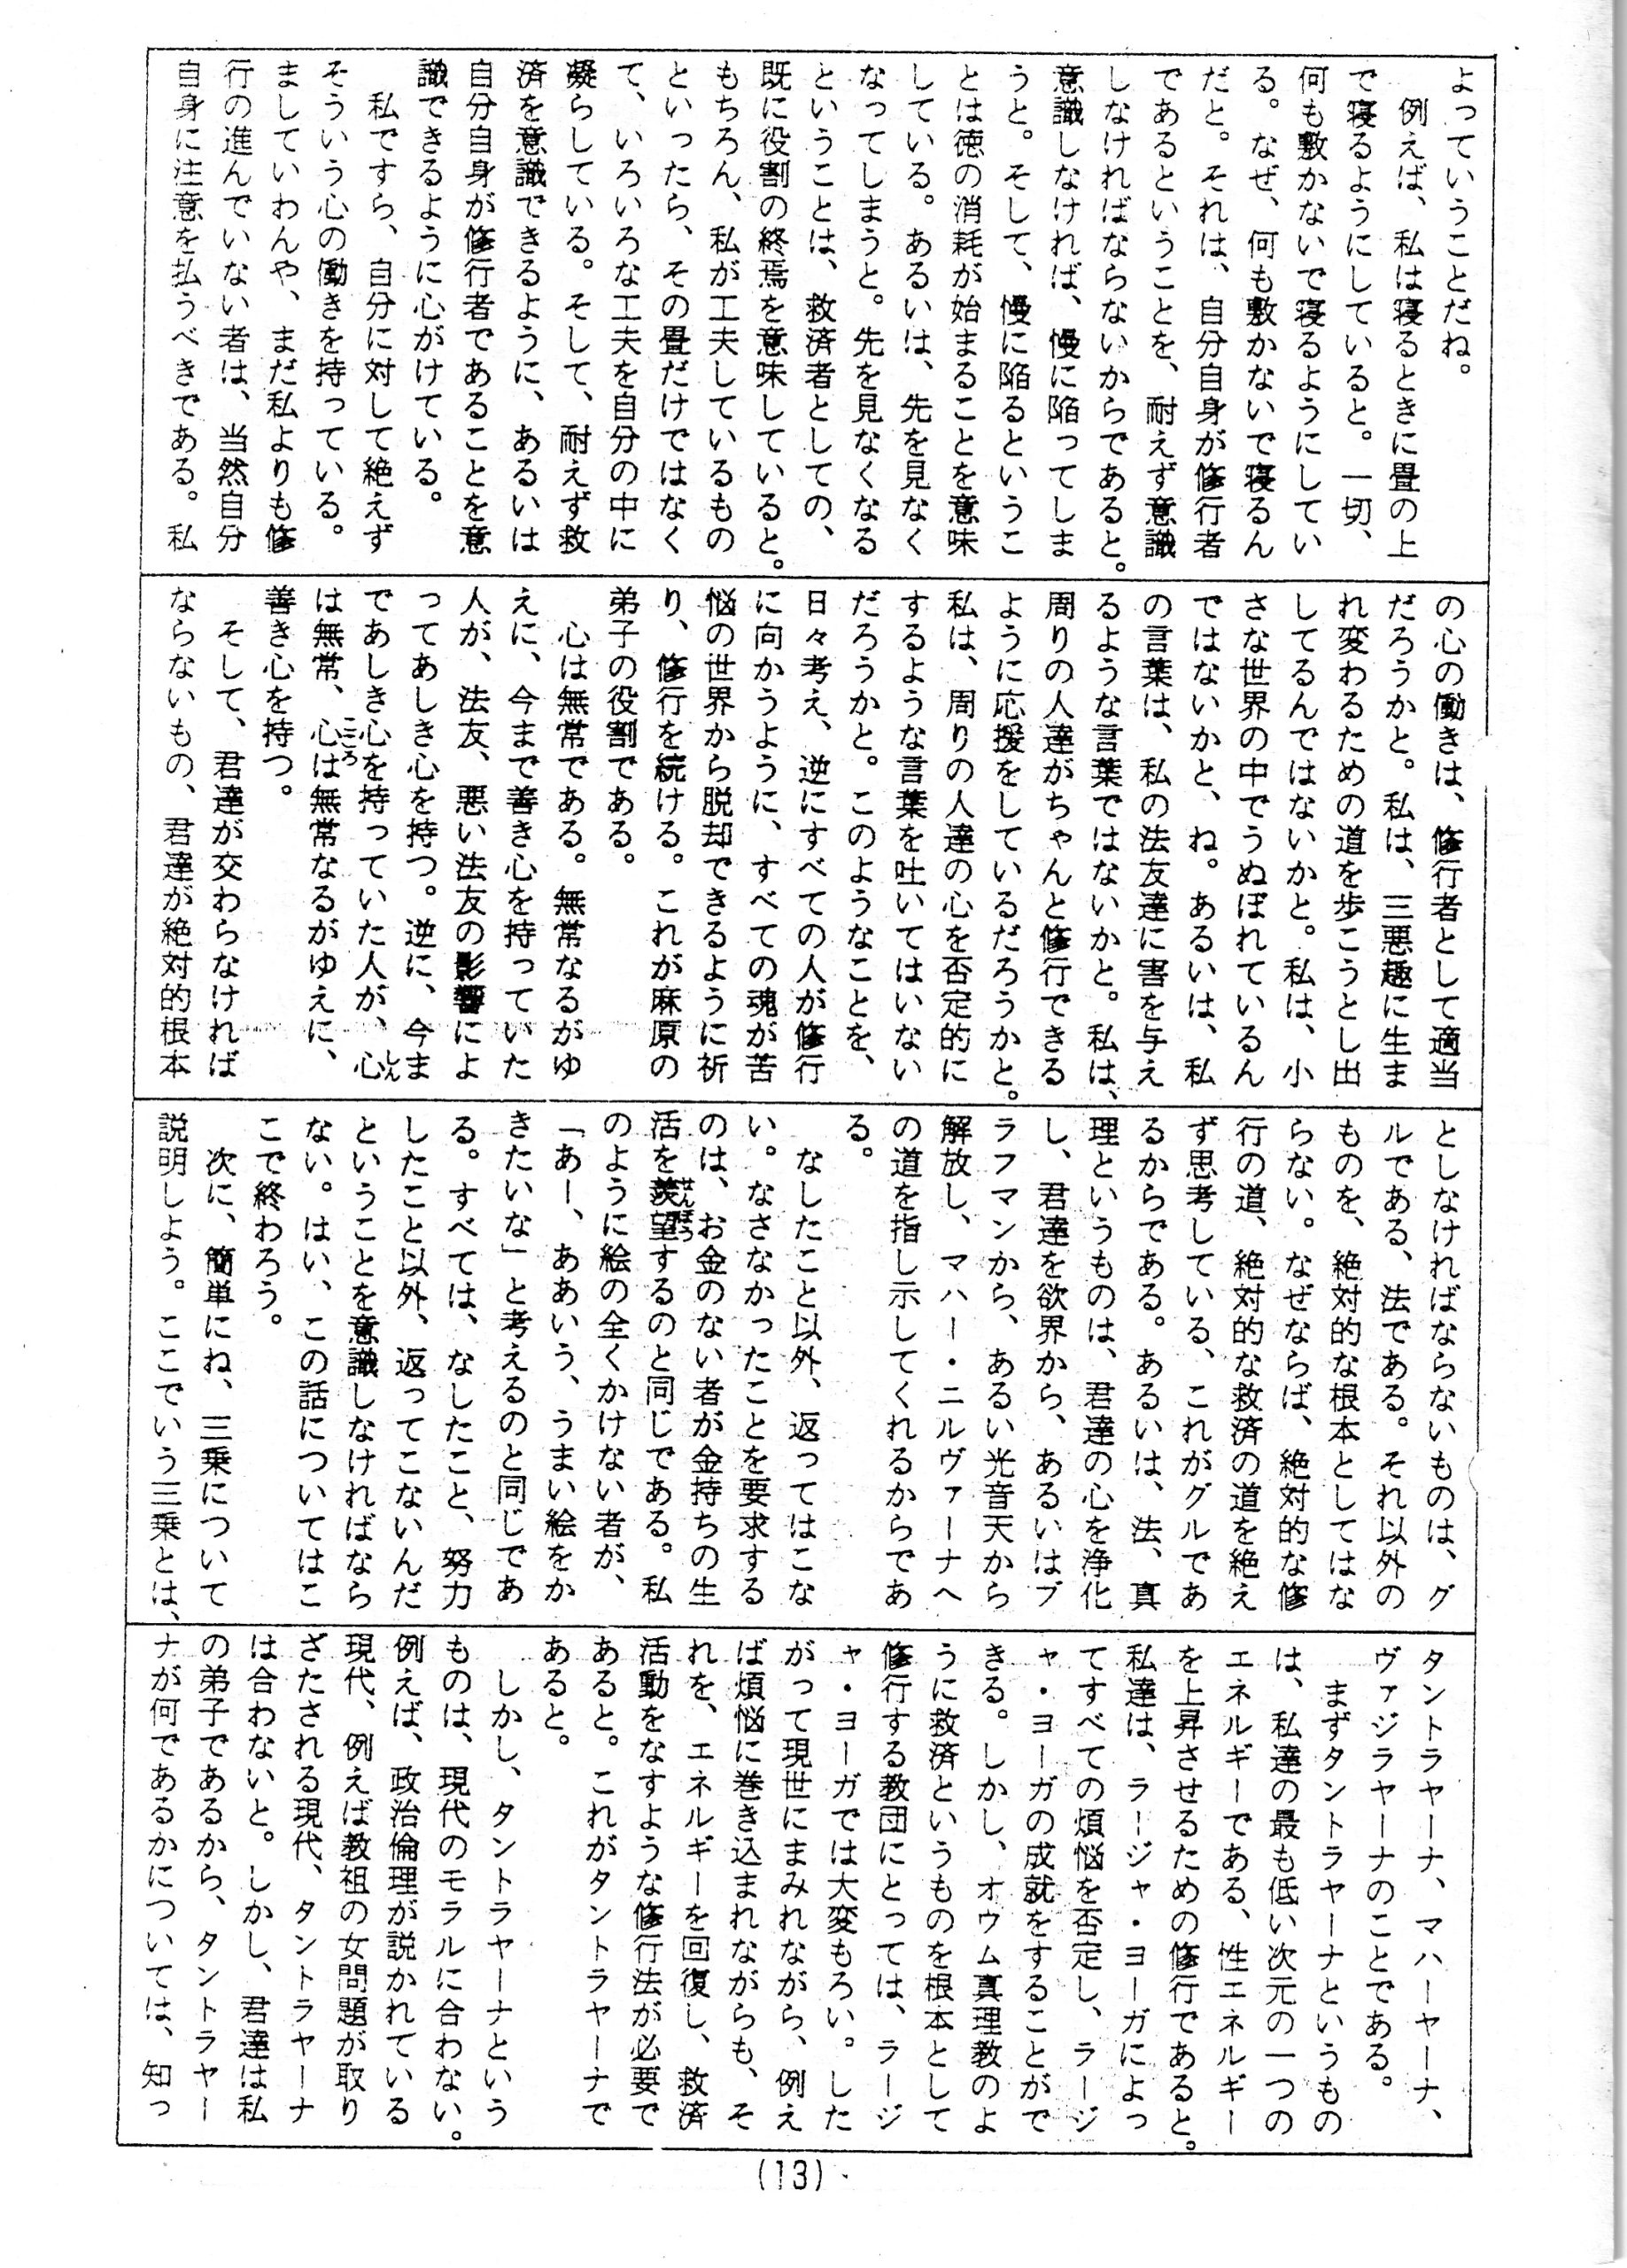 よっていうことだね。
　例えば、私は寝るときに畳の上
で寝るようにしていると。一切、
何も敷かないで寝るようにしてい
る。なぜ、何も敷かないで寝るん
だと。それは、自分自身が修行者
であるということを、耐えず意識
しなければならないからであると。
意識しなければ、慢に陥ってしま
うと。そして、慢に陥るというこ
とは徳の消耗が始まることを意味
している。あるいは、先を見なく
なってしまうと。先を見なくなる
ということは、救済者としての、
既に役割の終焉を意味していると。
もちろん、私が工夫しているもの
といったら、その畳だけではなく
て、いろいろな工夫を自分の中に
凝らしている。そして、耐えず救
済を意識できるように、あるいは
自分自身が修行者であることを意
識できるように心がけている。
　私ですら、自分に対して絶えず
そういう心の働きを持っている。
ましていわんや、まだ私よりも修
行の進んでいない者は、当然自分
自身に注意を払うべきである。私
の心の働きは、修行者として適当
だろうかと。私は、三悪趣に生ま
れ変わるための道を歩こうとし出
してるんではないかと。私は、小
さな世界の中でうぬぼれているん
ではないかと、ね。あるいは、私
の言葉は、私の法友達に害を与え
るような言葉ではないかと。私は、
周りの人達がちゃんと修行できる
ように応援をしているだろうかと。
私は、周りの人達の心を否定的に
するような言葉を吐いてはいない
だろうかと。このようなことを、
日々考え、逆にすべての人が修行
に向かうように、すべての魂が苦
悩の世界から脱却できるように祈
り、修行を続ける。これが麻原の
弟子の役割である。
　心は無常である。無常なるがゆ
えに、今まで善き心を持っていた
人が、法友、悪い法友の影響によ
ってあしき心を持つ。逆に、今ま
であしき心を持っていた人が、心しん
は無常、心こころは無常なるがゆえに、
善き心を持つ。
　そして、君達が交わらなければ
ならないもの、君達が絶対的根本
としなければならないものは、グ
ルである、法である。それ以外の
ものを、絶対的な根本としてはな
らない。なぜならば、絶対的な修
行の道、絶対的な救済の道を絶え
ず思考している、これがグルであ
るからである。あるいは、法、真
理というものは、君達の心を浄化
し、君達を欲界から、あるいはブ
ラフマンから、あるい光音天から
解放し、マハー・ニルヴァーナへ
の道を指し示してくれるからであ
る。
　なしたこと以外、返ってはこな
い。なさなかったことを要求する
のは、お金のない者が金持ちの生
活を羨望せんぼうするのと同じである。私
のように絵の全くかけない者が、
「あー、ああいう、うまい絵をか
きたいな」と考えるのと同じであ
る。すべては、なしたこと、努力
したこと以外、返ってこないんだ
ということを意識しなければなら
ない。はい、この話についてはこ
こで終わろう。
　次に、簡単にね、三乗について
説明しよう。ここでいう三乗とは、
タントラヤーナ、マハーヤーナ、
ヴァジラヤーナのことである。
　まずタントラヤーナというもの
は、私達の最も低い次元の一つの
エネルギーである、性エネルギー
を上昇させるための修行であると。
私達は、ラージャ・ヨーガによっ
てすべての煩悩を否定し、ラージ
ャ・ヨーガの成就をすることがで
きる。しかし、オウム真理教のよ
うに救済というものを根本として
修行する教団にとっては、ラージ
ャ・ヨーガでは大変もろい。した
がって現世にまみれながら、例え
ば煩悩に巻き込まれながらも、そ
れを、エネルギーを回復し、救済
活動をなすような修行法が必要で
あると。これがタントラヤーナで
あると。
　しかし、タントラヤーナという
ものは、現代のモラルに合わない。
例えば、政治倫理が説かれている
現代、例えば教祖の女問題が取り
ざたされる現代、タントラヤーナ
は合わないと。しかし、君達は私
の弟子であるから、タントラヤー
ナが何であるかについては、知っ
(13)